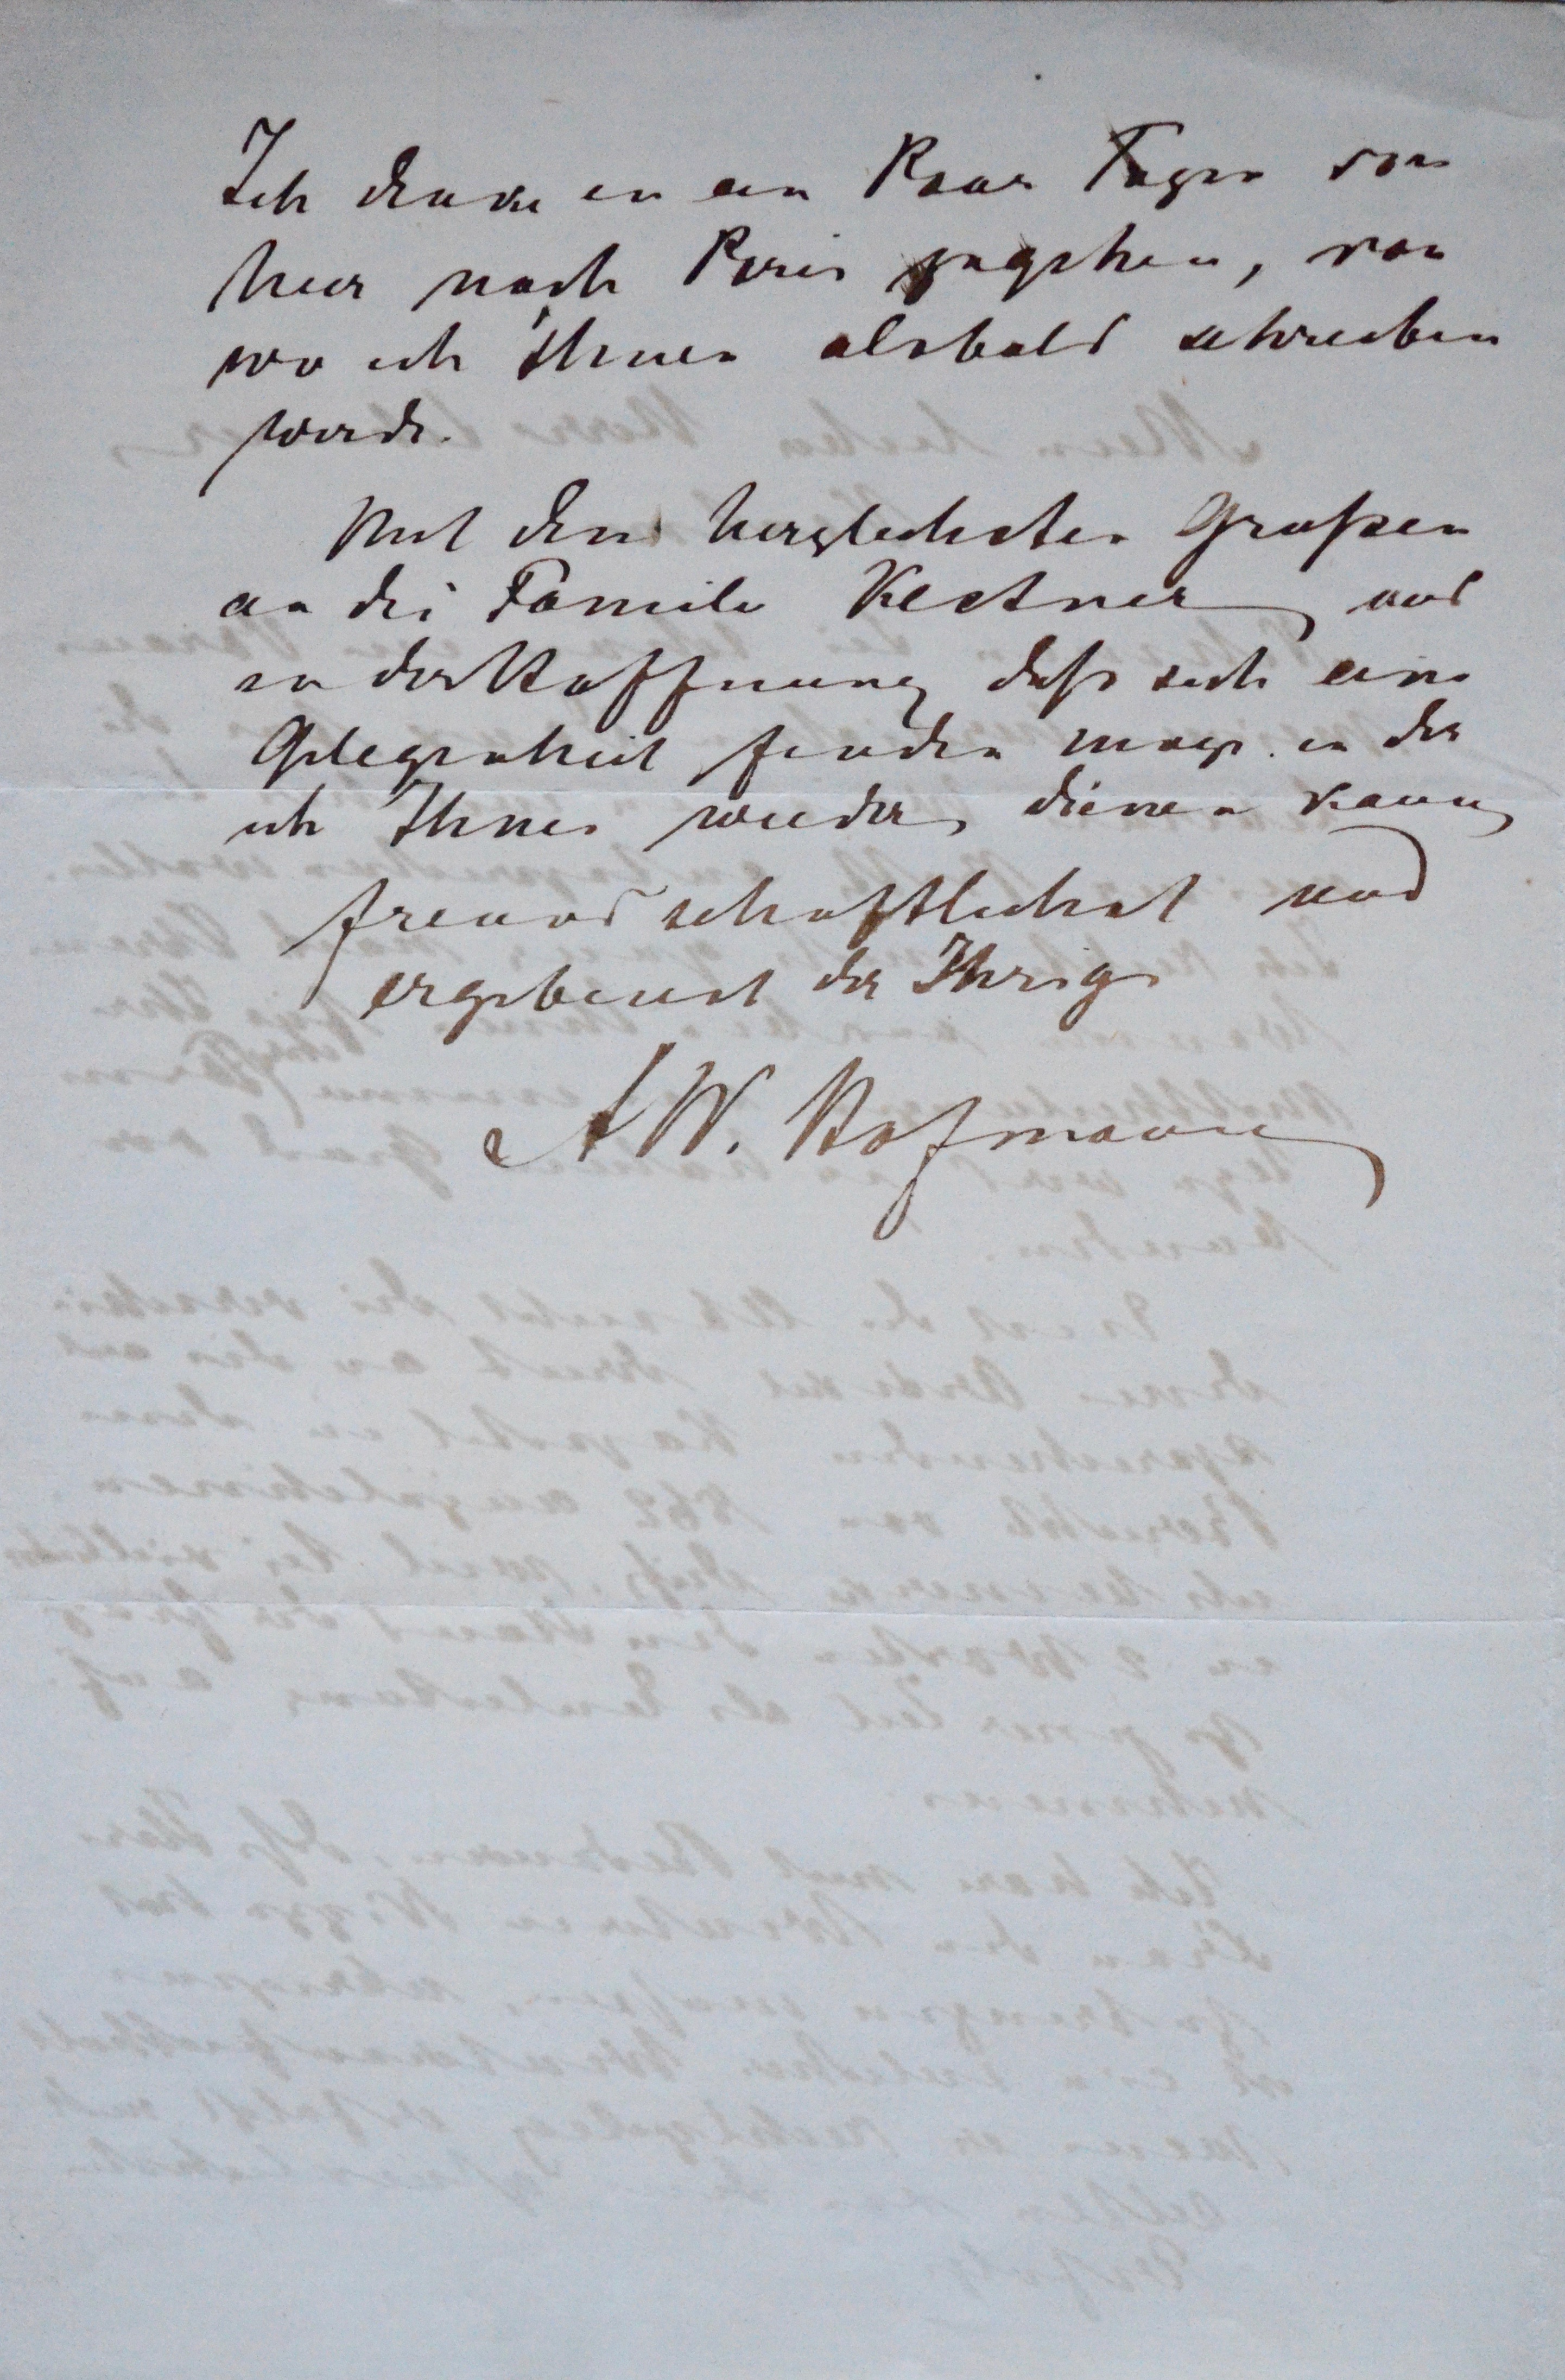 Ich denke in ein Paar Tagen von
hier nach Paris zugehen, von
wo ich Ihnen alsbald schreiben
werde.
Mit den herzlichsten Grußen
an die Familie Kestner und
in der Hoffnung daß sich eine
Gelegenheit finden moge in der
ich Ihnen wieder dienen kann
freundschaftlichst und
ergebenst der Ihrige
AW. Hofmann